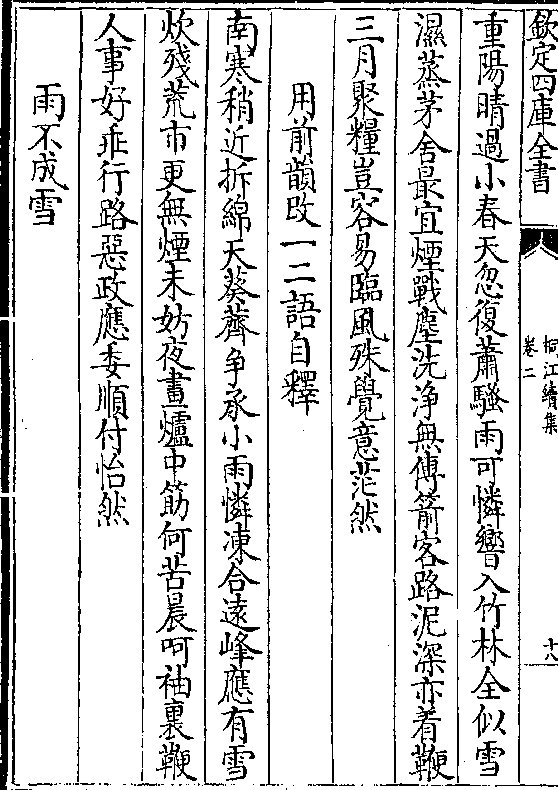 欽定四庫全書
桐江續集
卷二
十八
重陽晴過小春天忽復蕭騷雨可憐響入竹林全似雪
濕蒸茅舍最宜煙戰塵洗净無傳箭客路泥深亦着鞭
三月聚糧豈容易臨風殊覺意茫然
用前韻改一二語自釋
南寒稍近拆綿天葵薺争承小雨憐凍合遠峰應有雪
炊殘荒市更無煙未妨夜畫爐中筯何苦晨呵袖裏鞭
人事好乖行路惡政應委順付怡然
雨不成雪